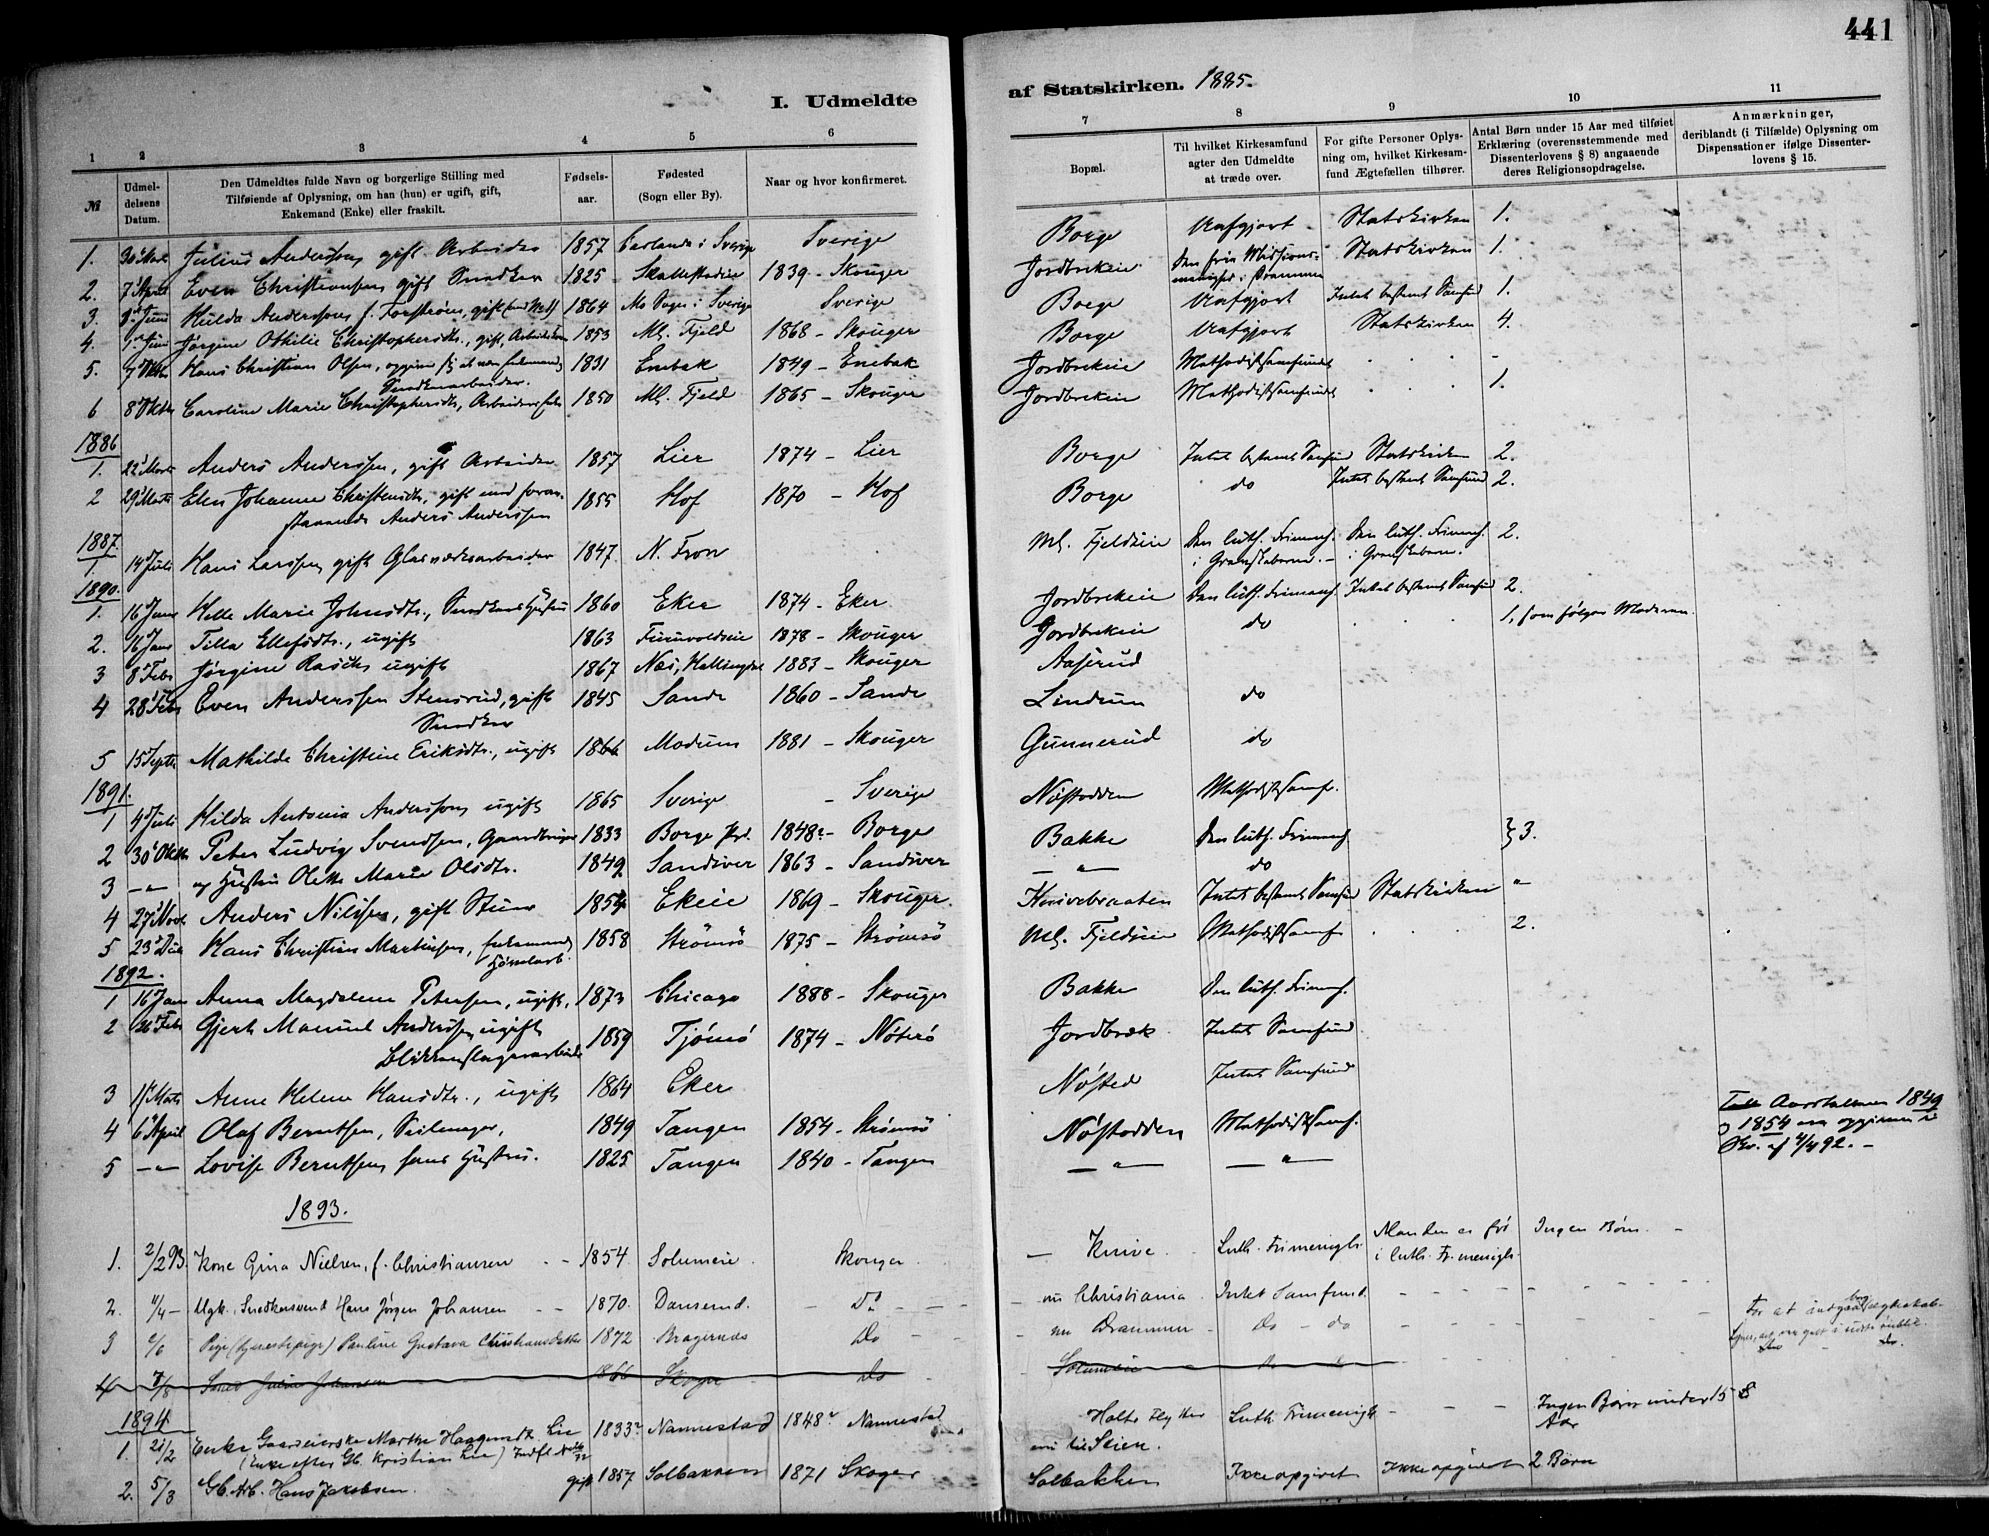 441
I. Udmeldte
af Statskirken. 1885.
1 2 3 4 5 6
7 8 9 10 11
№
Udmel-
delsens
Datum.
Den Udmeldtes fulde Navn og borgerlige Stilling med
Tilføiende af Oplysning, om han (hun) er ugift, gift,
Enkemand (Enke) eller fraskilt.
Fødsels-
aar.
Fødested
(Sogn eller By).
Naar og hvor konfirmeret.
Bopæl.
Til hvilket Kirkesamfund
agter den Udmeldte
at træde over.
For gifte Personer Oplys-
ning om, hvilket Kirkesam-
fund Ægtefællen tilhører.
Antal Børn under 15 Aar med tilføiet
Erklæring (overensstemmende med
Dissenterlovens § 8) angaaende
deres Religionsopdragelse.
Anmærkninger,
deriblandt (i Tilfælde) Oplysning om
Dispensationer ifølge Dissenter-
lovens § 15.
1. Julius Anderssen, gift Arbeider 1857 i Sverige Sverige Borge Uafgjort Statskirken 1.
2. 7 April Even Christiansen gift Snedker 1825 1839 - Skouger Jordbrekeie Den frie Missions-
menighed i Drammen Statskirken 1.
3. Hulda Anderssen f. gift 1864 i Sverige Sverige Borge Uafgjort Intet bestemt Samfund 1.
4. Jørgine Othilie Christophersdtr., gift, 1853 Ml. Fjeld 1868 - Skouger Borge Uafgjort Statskirken 4.
5. 7 Oktbr Hans Christian Olsen, 1831 Enebak 1849 - Enebak Jordbrekeie Methodistsamfundet -
Snedkerarbeider.
6 8 Oktbr Caroline Marie Christophersdtr, 1850 Ml. Fjeld 1865 - Skouger Jordbrekeie Methodistsamfundet 1.
1886
1. 22 Marts Anders Anderssen, gift Arbeider 1857 Lier 1874 - Lier Borge Intet bestemt Samfund Statskirken 2.
2 29 Marts Elen Johanne Christensdtr, gift med foran-
staaende Anders Anderssen 1855 Hof 1870 - Hof Borge do Intet bestemt Samfund 2.
1887.
1. 14 Juli Hans Larssen, gift Glasværksarbeider 1847. N. Fron Ml. Fjeldeie Den luth. Frimengh.
i Grevskaberne. - Den luth. Frimengh.
i Grevskaberne. 2.
1890.
1. 16 Janr Helle Marie Johnsdtr., Snedkers Hustru 1860 Eker 1874 - Eker Jordbrekeie Den luth. Frimengh. Intet bestemt Samfund 2.
2. 16 Janr Tilla Ellefsdtr., ugift 1863 1878 - Skouger Jordbrekeie do 1, som følger Moderen.
3 8 Febr Jørgine ugift 1867 Næs, Hallingdal 1883 - Skouger Aaserud
4 28 Febr Even Anderssen Stensrud, gift
Snedker 1845 Sande 1860 - Sande Lindum do
5 15 Septbr Mathilde Christine Eriksdtr., ugift 1866 Modum 1881 - Skouger Gunnerud do
1891.
1 4 Juli Hilda Antonia Anderssen ugift 1865 Sverige - Sverige Nøstodden Methodistsamf.
2 30 Oktbr Peter Ludvig Svendsen, Gaardbruger 1833 Borge Pgd. 1848? - Borge Bakke Den luth. Frimengh. } 3.
3 - " - og Hustru Olette Marie Olsdtr. 1849 Sandsver 1863 - Sandsver - " - do
4 27 Novbr Anders Nilssen, gift 1854 Ekeie 1869 - Skouger. Knivebraaten Intet bestemt Samfund Statskirken "
5 23 Dec Hans Christian Martinsen, Enkemand
1858 Strømsö 1875 - Strømsö Ml. Fjeldeie Methodistsamf. 2.
1892.
1 16 Janr Anna Magdalene Petersen, ugift, 1873 Chicago 1888 - Skouger Bakke Den luth. Frimengh.
2 26 Febr Gjert Manuel Anderssen ugift
Blikkenslagerarbeider 1859 Tjømö 1874 - Nöterö Jordbræk Intet Samfund
3 Marts Anne Helene Hansdtr., ugift 1864 Eker Nøsted Intet Samfund
4 6 April Olaf Berntsen, Seilmager, 1849 Tangen 1854 - Strømsö Nøstodden Methodistsamf.
5 - " - Lovise Berntsen hans Hustru. 1825 Tangen 1840 - Tangen - " - - " -
Aarstallene 1849
og 1854 ere opgivne i
Skr. af 4/4 92. -
1893.
1. 2/2 93. Kone Gina Nielsen, f. Christiansen 1854. Solumeie. Skouger. Knive. Luth. Frimenigh. Manden er før
i luth. Fr.menigh. Ingen Børn.
2. 4/4 - Ugk. Snedkersvend Hans Jørgen Johansen 1870. Dansrud. Do nu Christiania. Intet Samfund.
3 6/6 Pige (tjenestepige) Pauline Gustava Christiansdatter 1872 Bragernæs Do nu Drammen - do - do
For at indgaa borg. ægteskab
4 7/8 Julius Johansen 1866 Skoger Do Solumeie
1894
1. 21/2 Enke Gaardeierske Marthe Haagensdt. Lie
(Enke efter Gb. Kristian Lie) 1833? Nannestad 1848? Nannestad Holte flytter
nu til Skien. Luth. Frimenigh Ingen Børn under 15
Aar
2. 5/3 Gb. Arb. Hans Jakobsen. gift 1857 Solbakken 1871 Skoger Solbakken Ikke opgivet Ikke opgivet 2 Børn